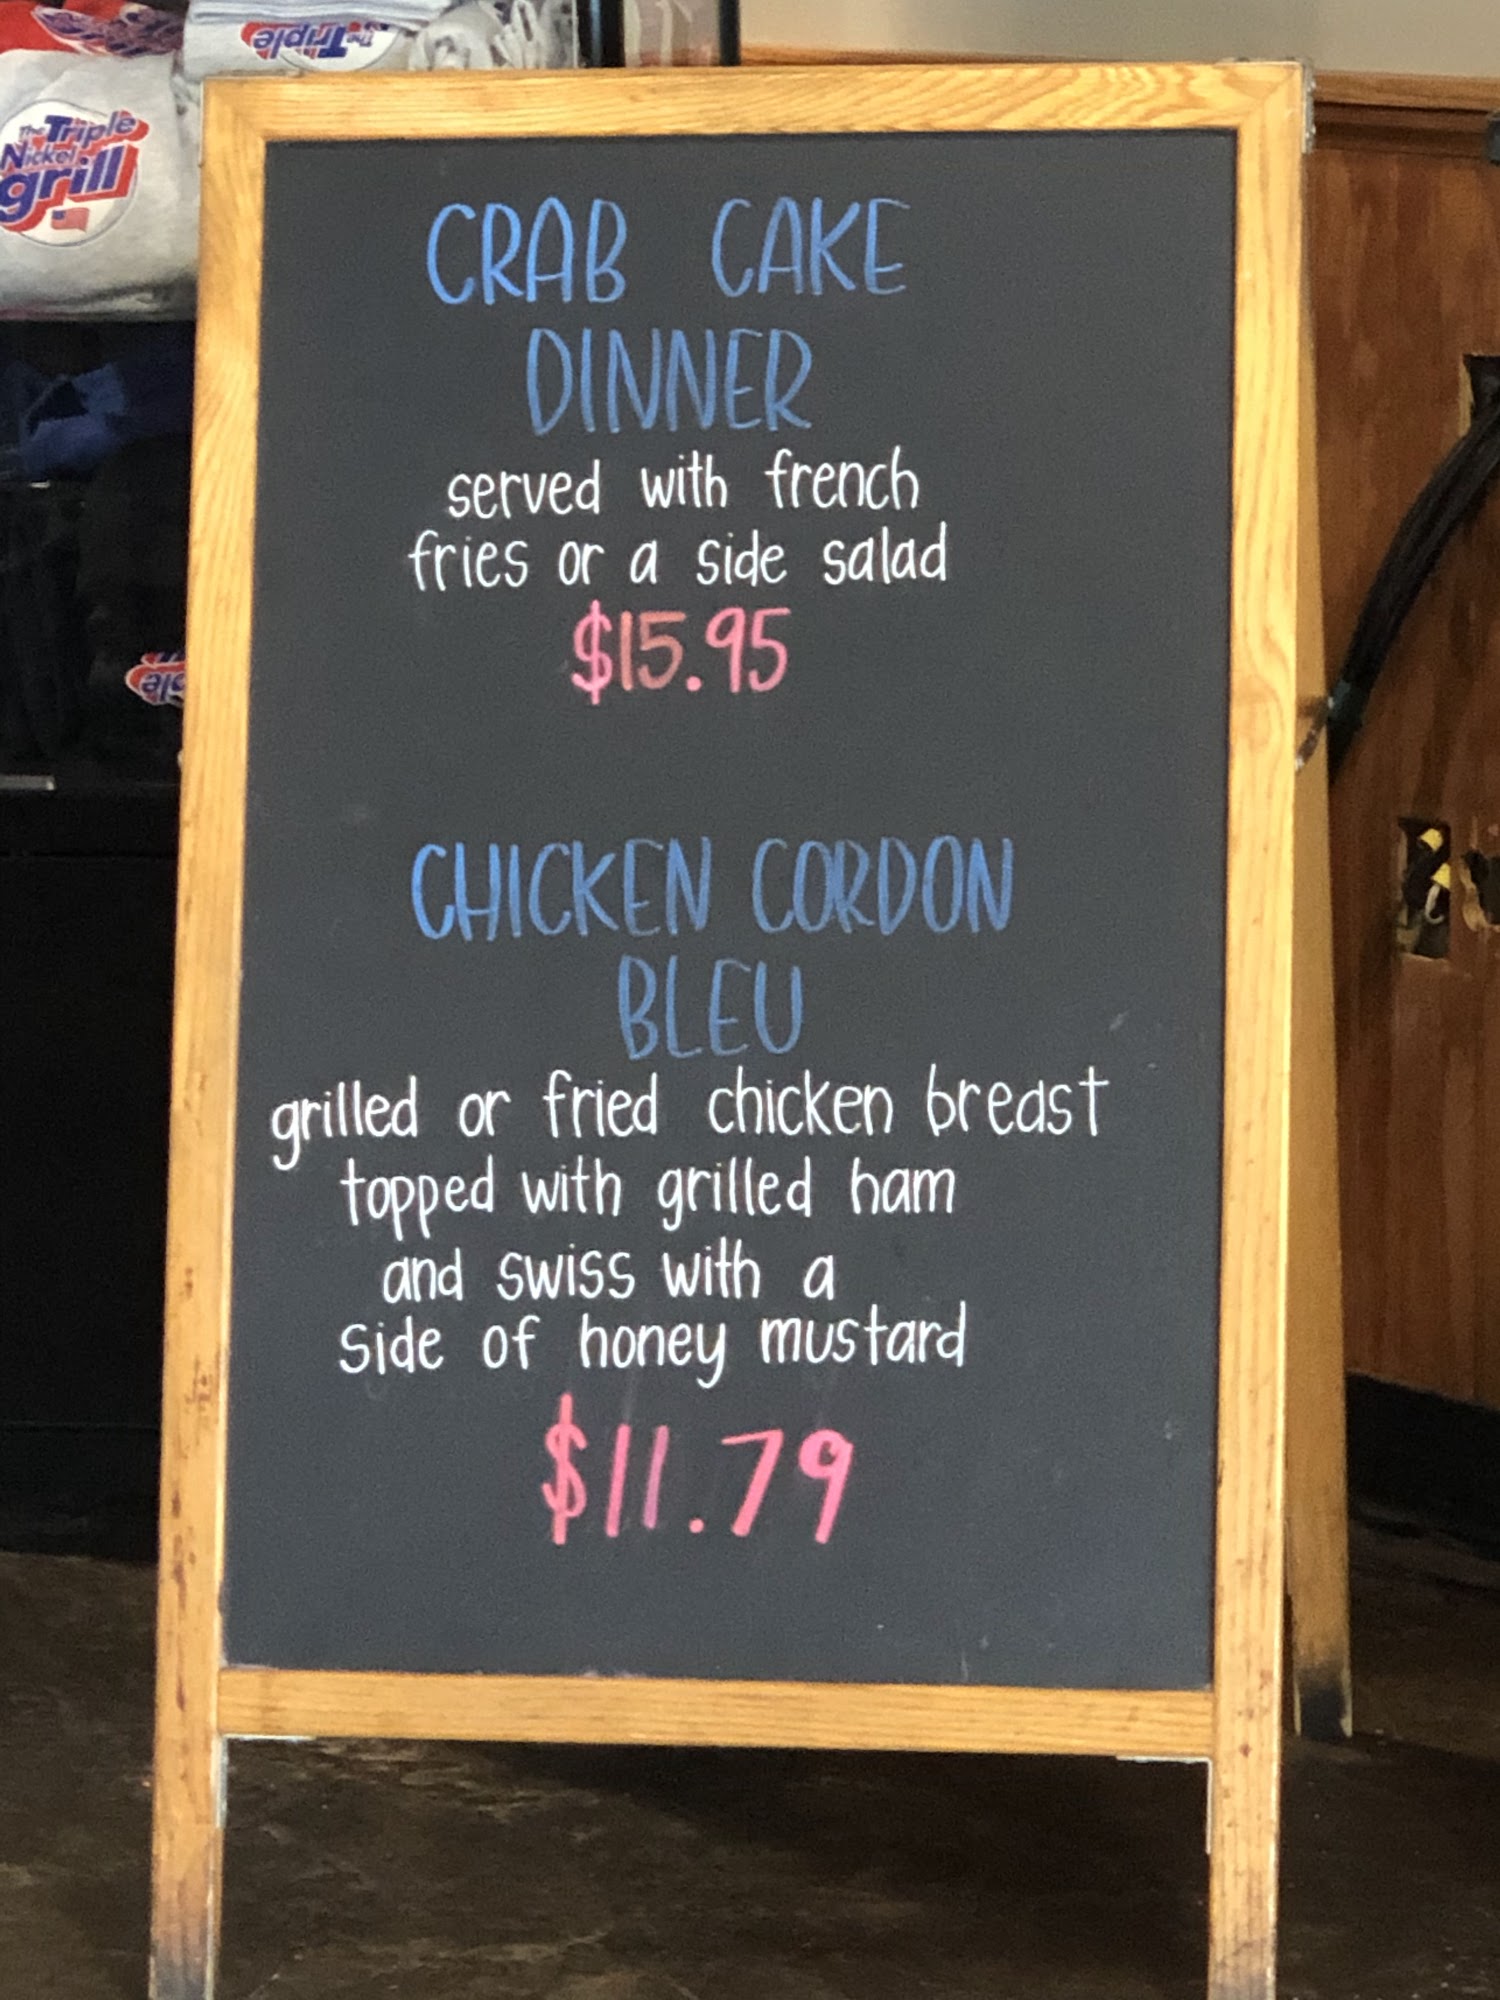 The Triple
The Triple
Nickel
grill
CRAB CAKE
DINNER
served with french
fries or a side salad
$15.95
CHICKEN CORDON
BLEU
grilled or fried chicken breast
topped with grilled ham
and swiss with a
side of honey mustard
$11.79